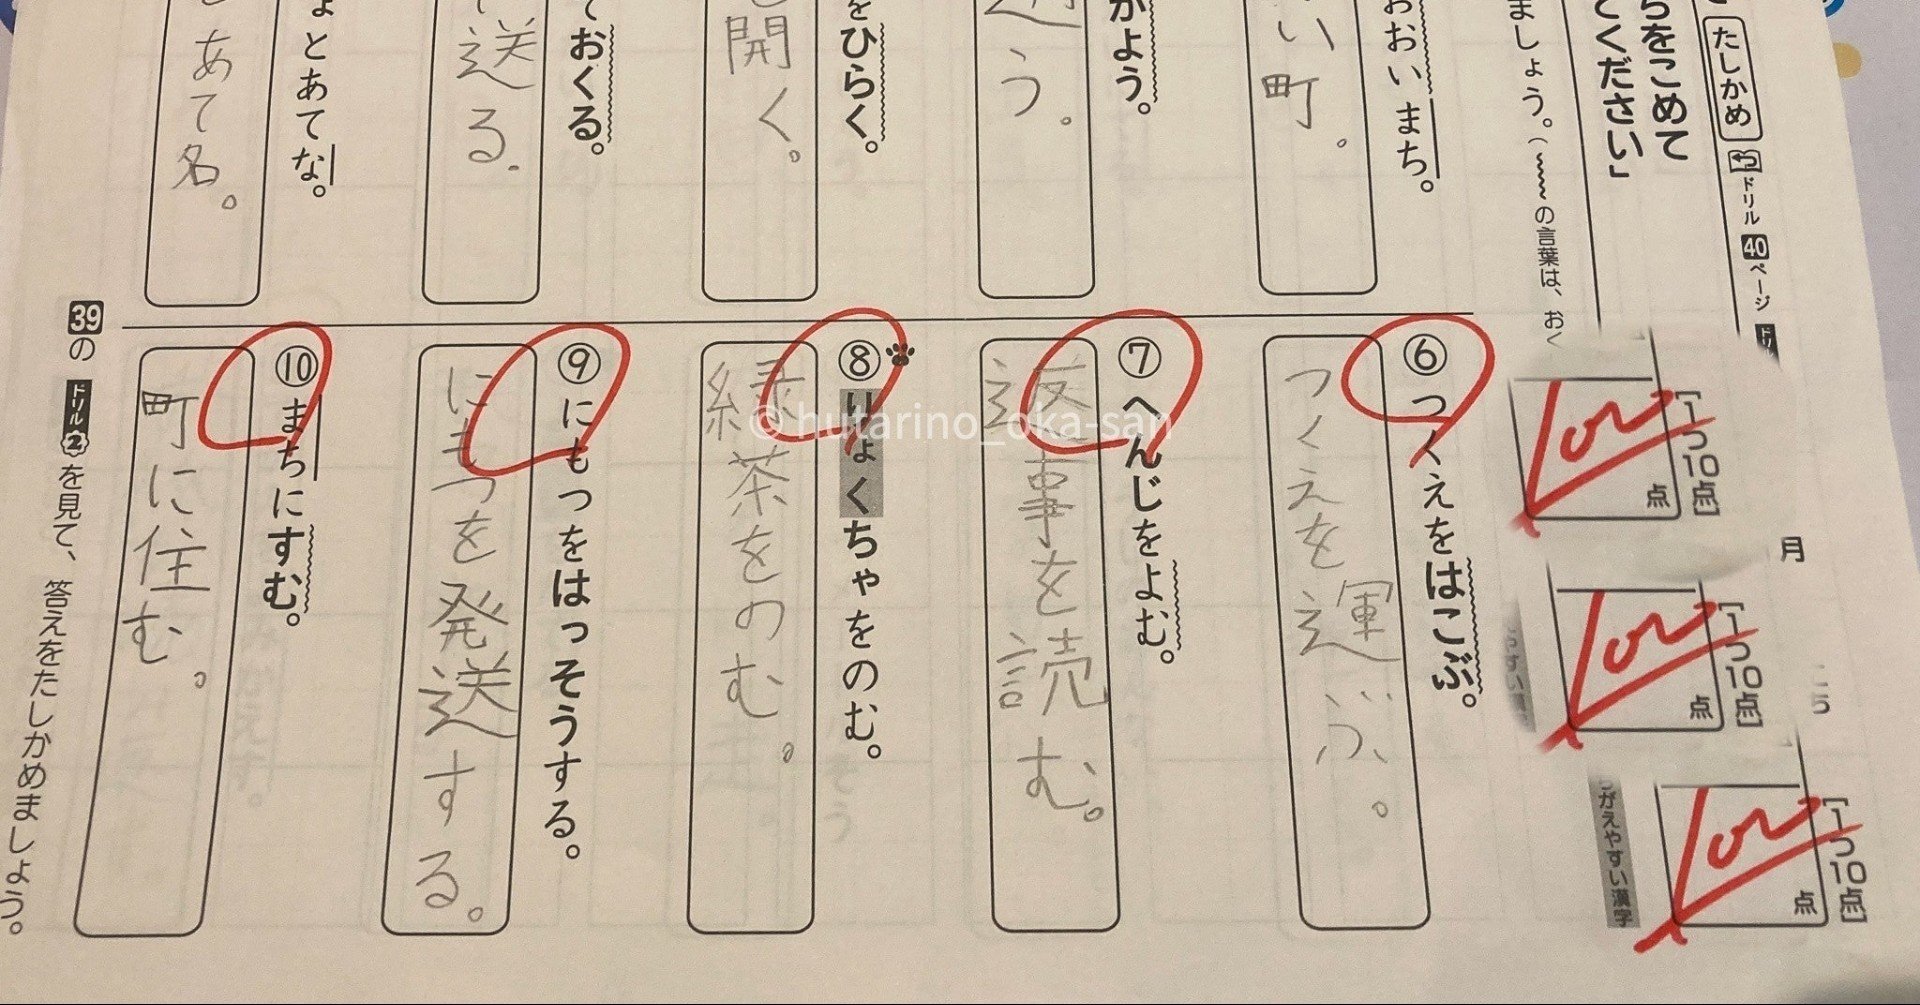 たしかめ
ドリル 40 ページ
らをこめて
てください」
ましょう。(
の言葉は、おく
おおいまち。
い町。
かよう。
う。
をひらく。
開く。
ておくる。
送る.
ょとあてな。
あて名。
[1つ10点]
点
月
[1つ10点]
点
[1つ10点]
点
ちがえやすい漢字
⑥つくえをはこぶ。
つくえを運ぶ。
⑦へんじをよむ。
返事を読む。
⑧りょくちゃをのむ。
緑茶をのむ。
⑨にもつをはっそうする。
にもつを発送する。
⑩まちにすむ。
町に住む。
39の ドリル2 を見て、答えをたしかめましょう。
© hutarino_oka-san